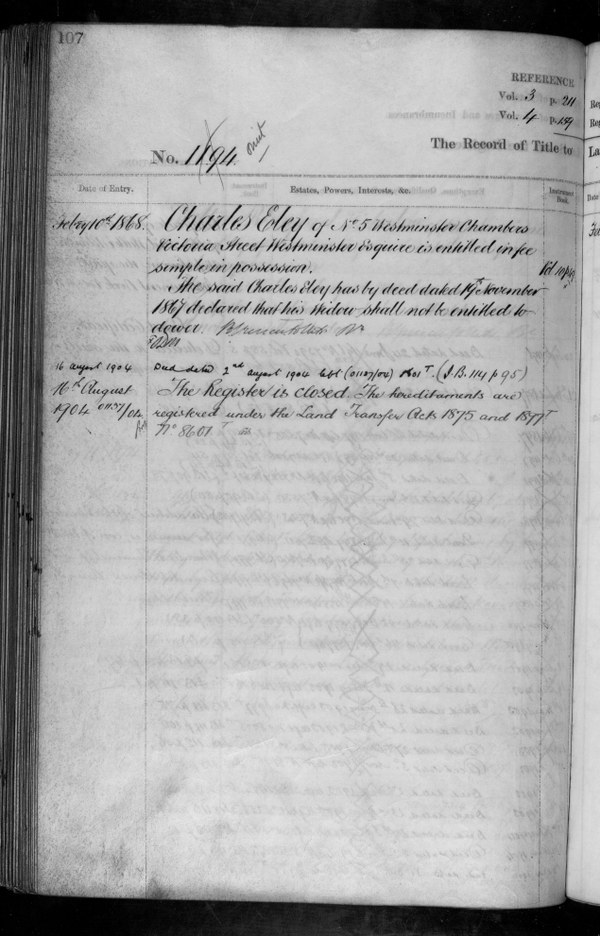 107
REFERENCE
Vol. 3 p. 211
Vol. 4 p. 139
omit
No. 1194
The Record of Title to
Date of Entry.
Estates, Powers, Interests, &c.
Instrument Book.
Feb'ry 10th 1868.
Charles Eley of No 5 Westminster Chambers
Victoria Street Westminster Esquire is entitled in fee
simple in possession.
The said Charles Eley has by deed dated 19th November
1867 declared that his Widow shall not be entitled to
dower.
16 August 1904
Deed dated 2nd August 1904 (J.B. 114 p 95)
16th August
1904 01137/04
The Register is closed. The hereditaments are
registered under the Land Transfer Acts 1875 and 1897
No 8601 T